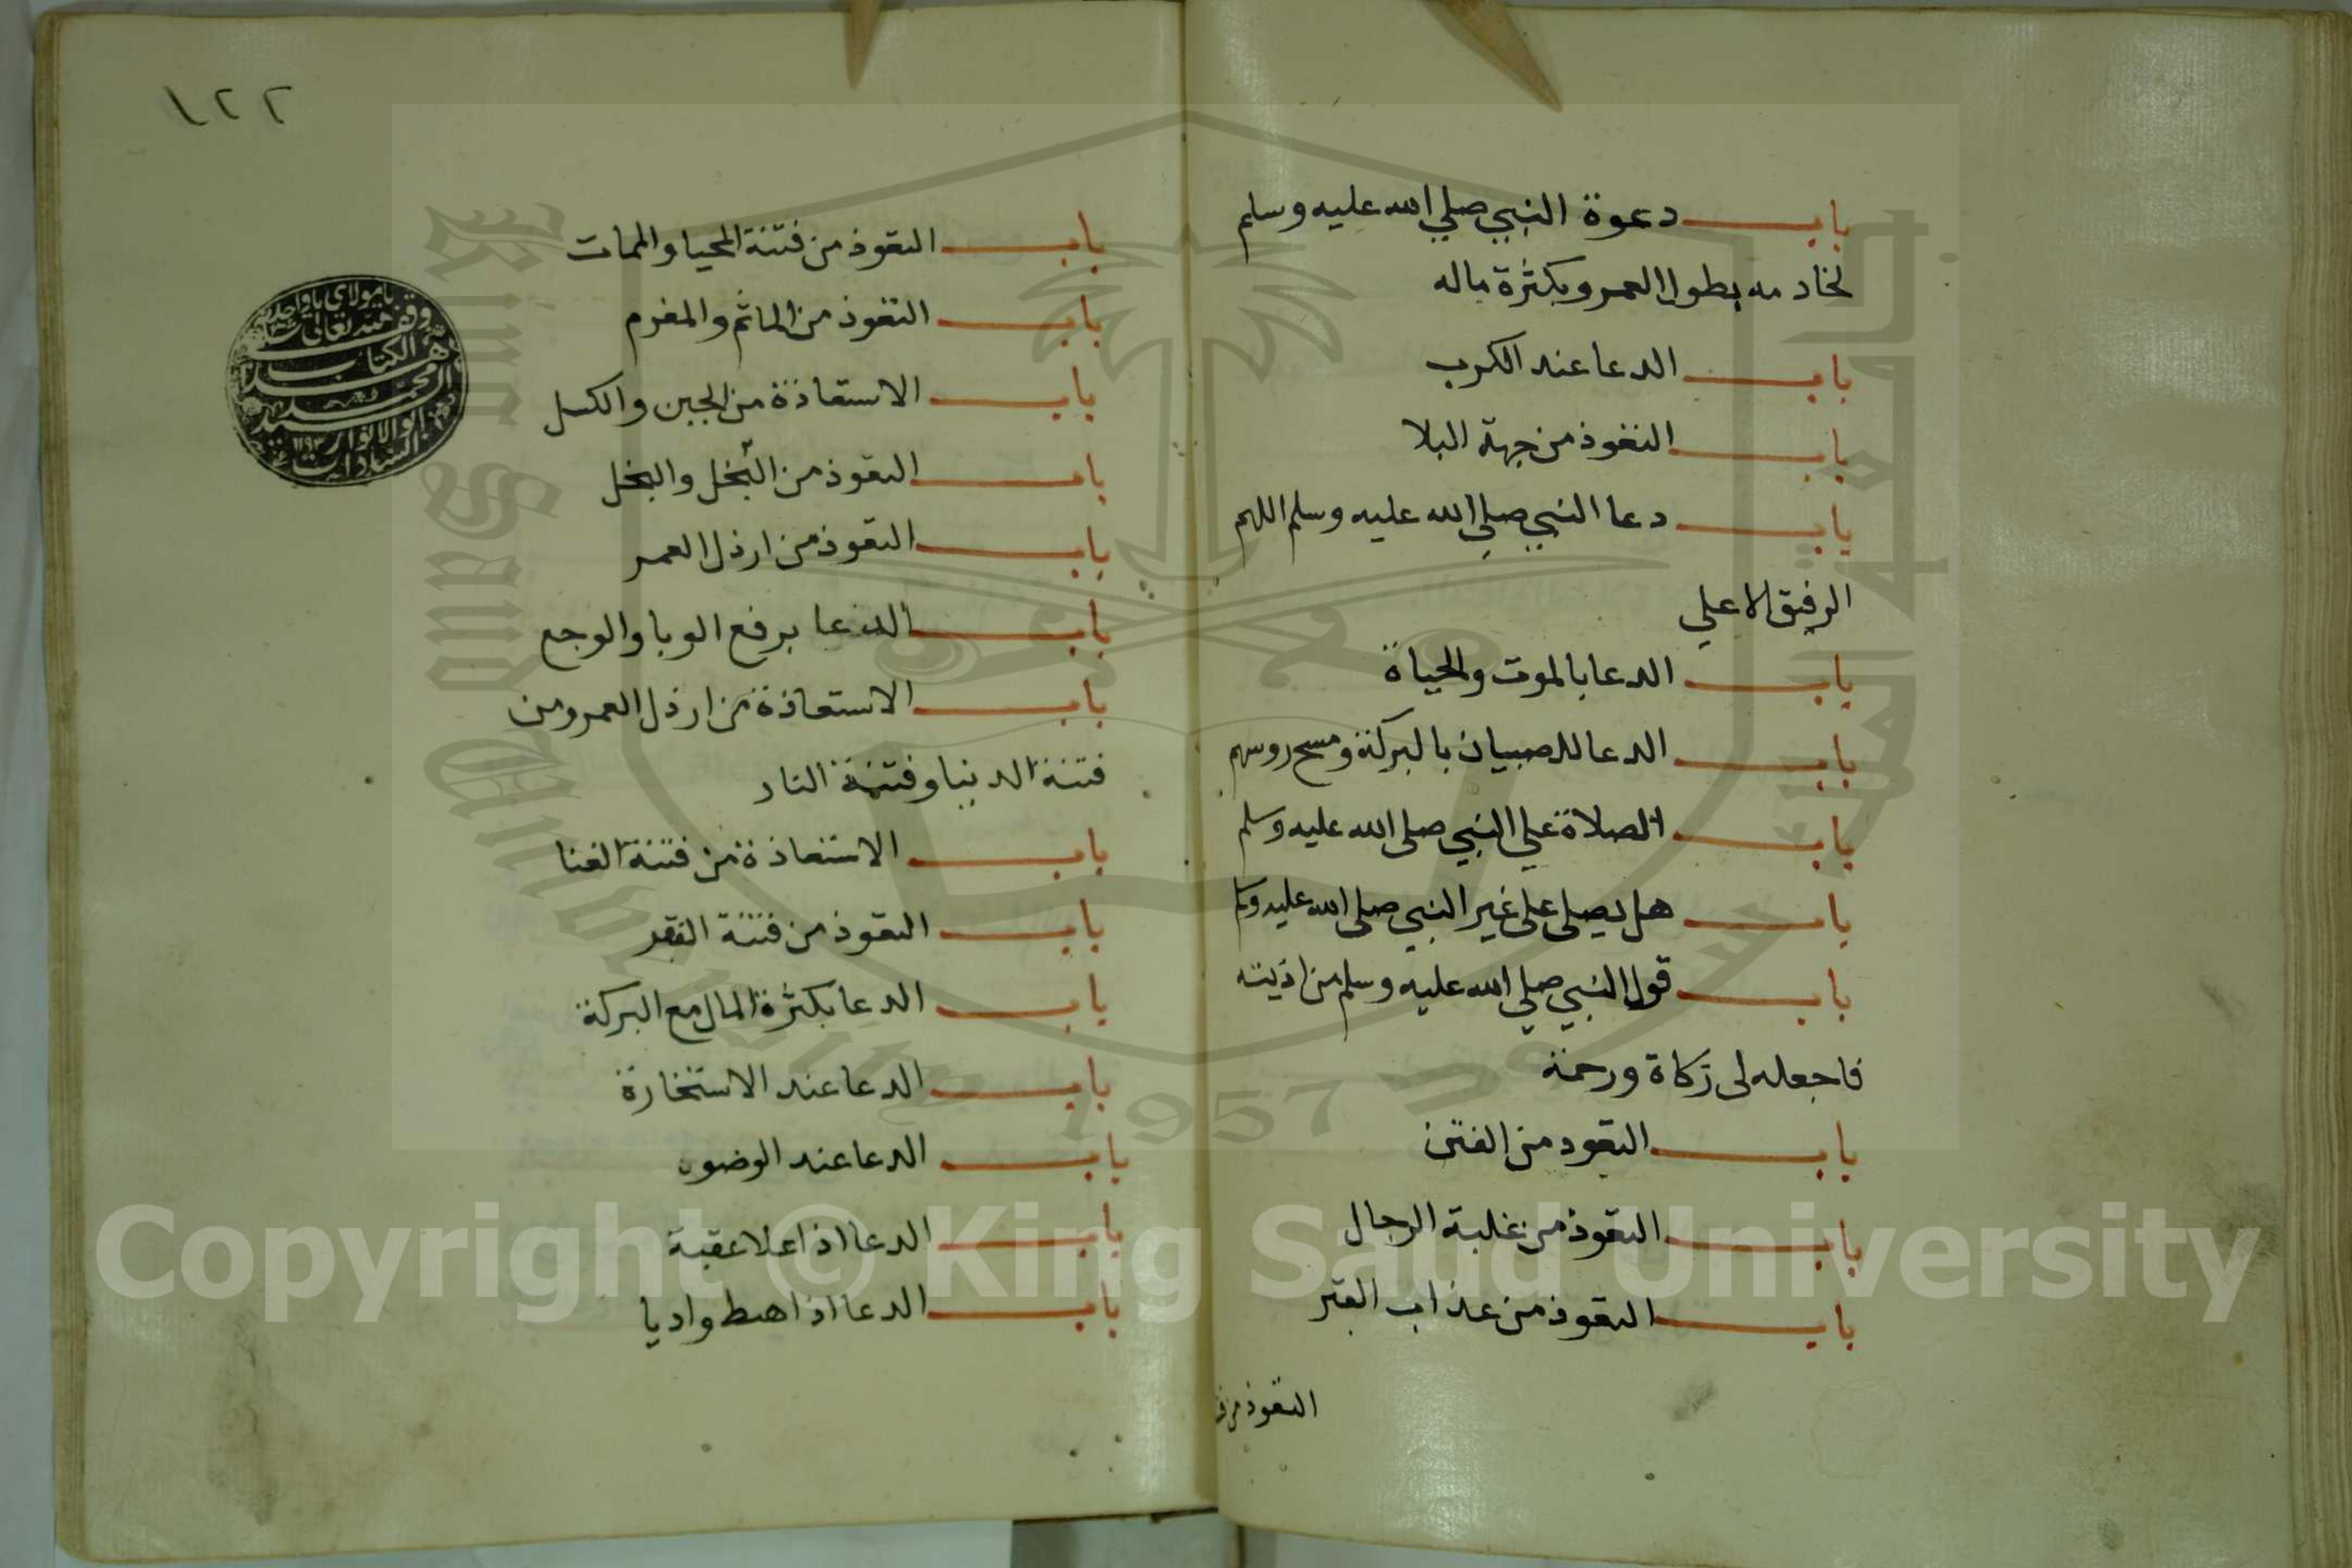 باب دعوة النبي صلي الله عليه وسلم
لخادمه بطول العمر وبكثرة ماله
باب الدعا عند الكرب
باب التعوذ من جهة البلا
باب دعا النبي صلي الله عليه وسلم اللهم
الرفيق الاعلي
باب الدعا بالموت والحياة
باب الدعا للصبيان بالبركة ومسح روسهم
باب الصلاة علي النبي صلى الله عليه وسلم
باب هل يصلى على غير النبي صلى الله عليه وسلم
باب قول النبي صلي الله عليه وسلم من اذيته
فاجعله لى زكاة ورحمة
باب التعود من الفتن
باب التعوذ من غلبة الرجال
باب التعوذ من عذاب القبر
التعوذ من
١٢٢
باب التعوذ من فتنة المحيا والممات
باب التعوذ من الماثم والمغرم
باب الاستعاذة من الجبن والكسل
باب التعوذ من البخل والبخل
باب التعوذ من ارذل العمر
باب الدعا برفع الوبا والوجع
باب الاستعاذة من ارذل العمر ومن
فتنة الدنيا وفتنة النار
باب الاستعاذة من فتنة الغنا
باب التعوذ من فتنة الفقر
باب الدعا بكثرة المال مع البركة
باب الدعا عند الاستخارة
باب الدعا عند الوضوء
باب الدعا اذا علا عقبة
باب الدعا اذا هبط واديا
يا مولاي يا واحد
وقف لله تعالى
هذا الكتاب
محمد
ابو الانوار
السادات
King Saud University
1957
Copyright © King Saud University